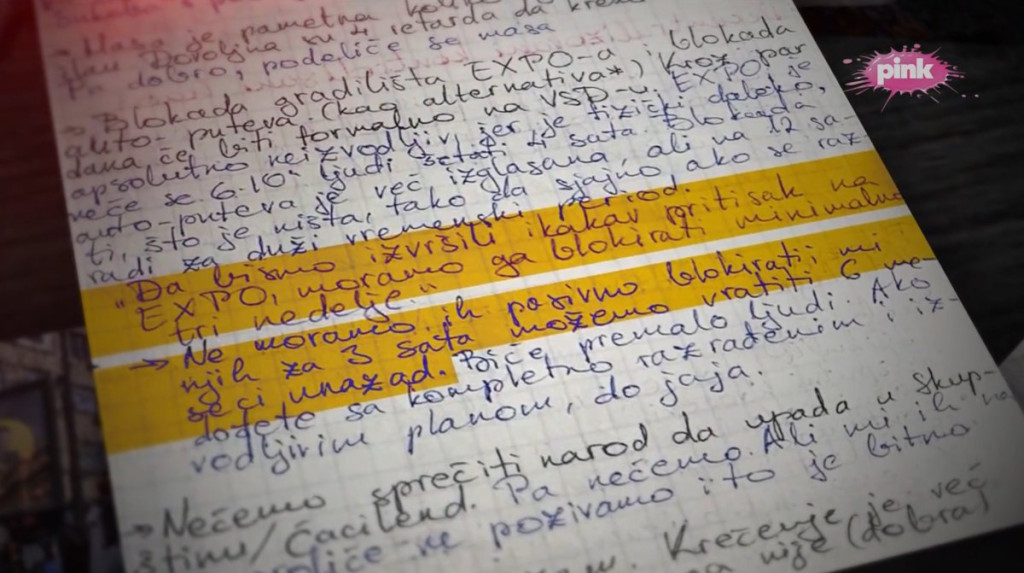 → Masa je pametna
Dovoljna su 4 retarda da krene
Pa dobro, podeliće se masa
pink
→ Blokada gradilišta EXPO-a i blokada
auto-puteva (kao alternativa*) kroz par
dana će biti formalno na VSD-u. EXPO je
apsolutno neizvodljiv, jer je fizički daleko,
neće se 6.10. ljudi šetati 4 sata. Blokada
auto-puteva je već izglasana, ali na 12 sa-
ti, što je ništa, tako da sjajno ako se raz
radi za duži vremenski period.
„Da bismo izvršili ikakav pritisak na
EXPO, moramo ga blokirati minimalno
tri nedelje."
→ Ne moramo ih pasivno blokirati, mi
njih za 3 sata možemo vratiti 6 me-
seci unazad. Biće premalo ljudi. Ako
dođete sa kompletno razrađenim i iz-
vodljivim planom, do jaja.
→ Nećemo sprečiti narod da upada u Skup-
štinu/Ćacilend. Pa nećemo. Ali mi ih na
ne pozivamo i to je bitno
Krečenje je već
nije (dobra)